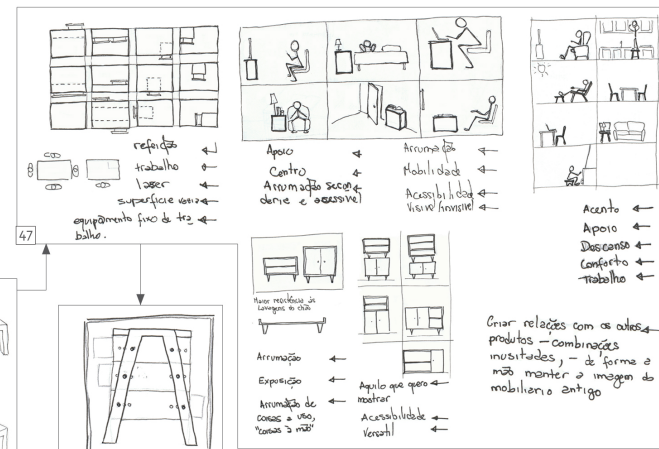 refeição
trabalho
lazer
superfície vazia
equipamento fixo de tra
balho.
47
Apoio
Centro
Arrumação secun
daria e acessivel
Arrumação
Mobilidade
Acessibilidade
Visivel/invisivel
Acento
Apoio
Descanso
Conforto
Trabalho
Maior resistência às
lavagens do chão
Arrumação
Exposição
Arrumação de
coisas a uso,
"coisas à mão"
Aquilo que quero
mostrar
Acessibilidade
Versatil
Criar relações com os outros
produtos – combinações
inusitadas, – de forma a
não manter a imagem do
mobiliario antigo